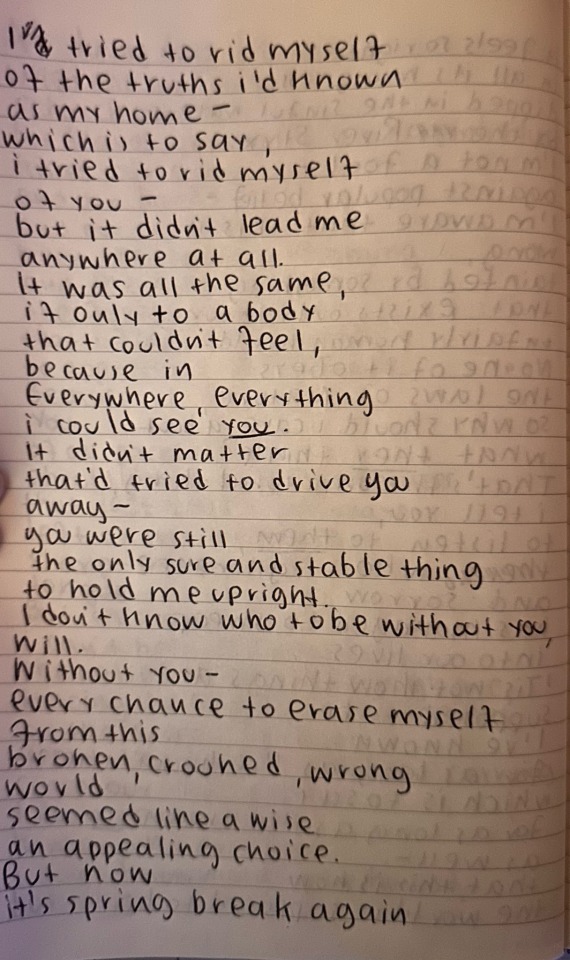 I'd tried to rid myself
of the truths i'd known
as my home –
which is to say,
i tried to rid myself
of you –
but it didn't lead me
anywhere at all.
It was all the same,
if only to a body
that couldn't feel,
because in
Everywhere, everything
i could see you.
It didn't matter
that'd tried to drive you
away –
you were still
the only sure and stable thing
to hold me upright.
I don't know who to be without you,
Will.
Without you –
every chance to erase myself
from this
broken, crooked, wrong
world
seemed like a wise
an appealing choice.
But now
it's spring break again